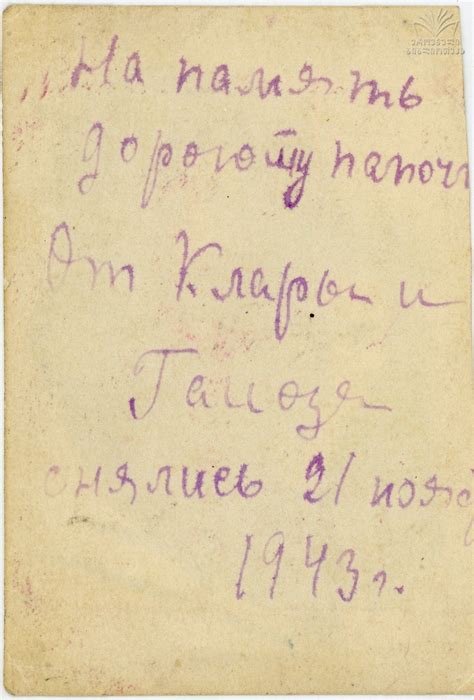 ეროვნული
ბიბლიოთეკა
„На память
дорогому папоч
От Клары и
снялись 21 нояб
1943 г.